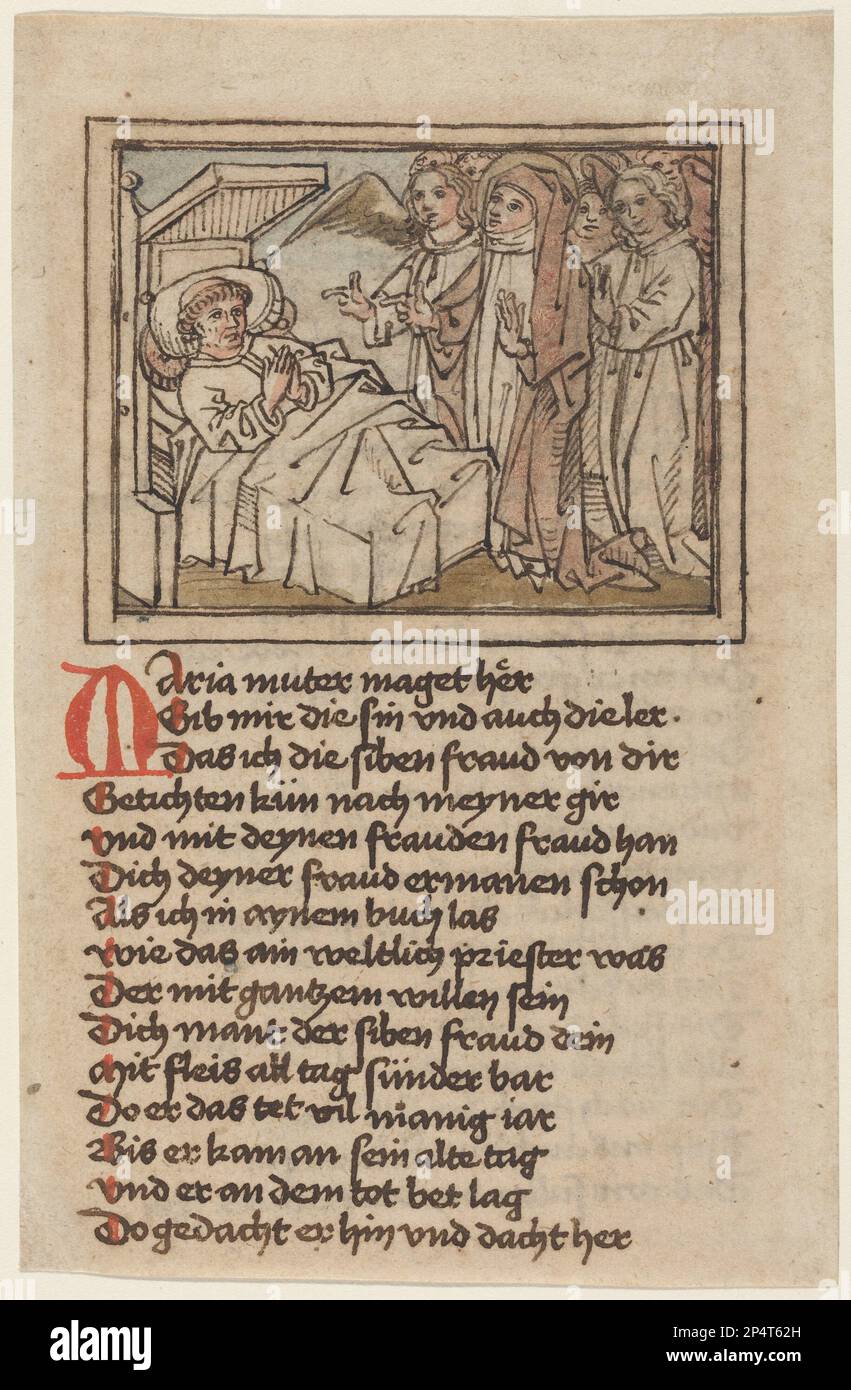 MAria muter maget hër
Gib mir die sin vnd auch die ler.
Das ich die siben fraud von dir
Getichten kün nach meyner gir
vnd mit deynen frauden fraud han
Dich deyner fraud ermanen schon
Als ich in aynem buch las
wie das ain weltlich priester was
Der mit gantzem willen sein
Dich mant der siben fraud dein
Mit fleis all tag sünder bar
Do er das tet vil manig iar
Bis er kam an sein alte tag
vnd er an dem tot bet lag
Do gedacht er hin vnd dacht her
alamy
Image ID: 2P4T62H
www.alamy.com